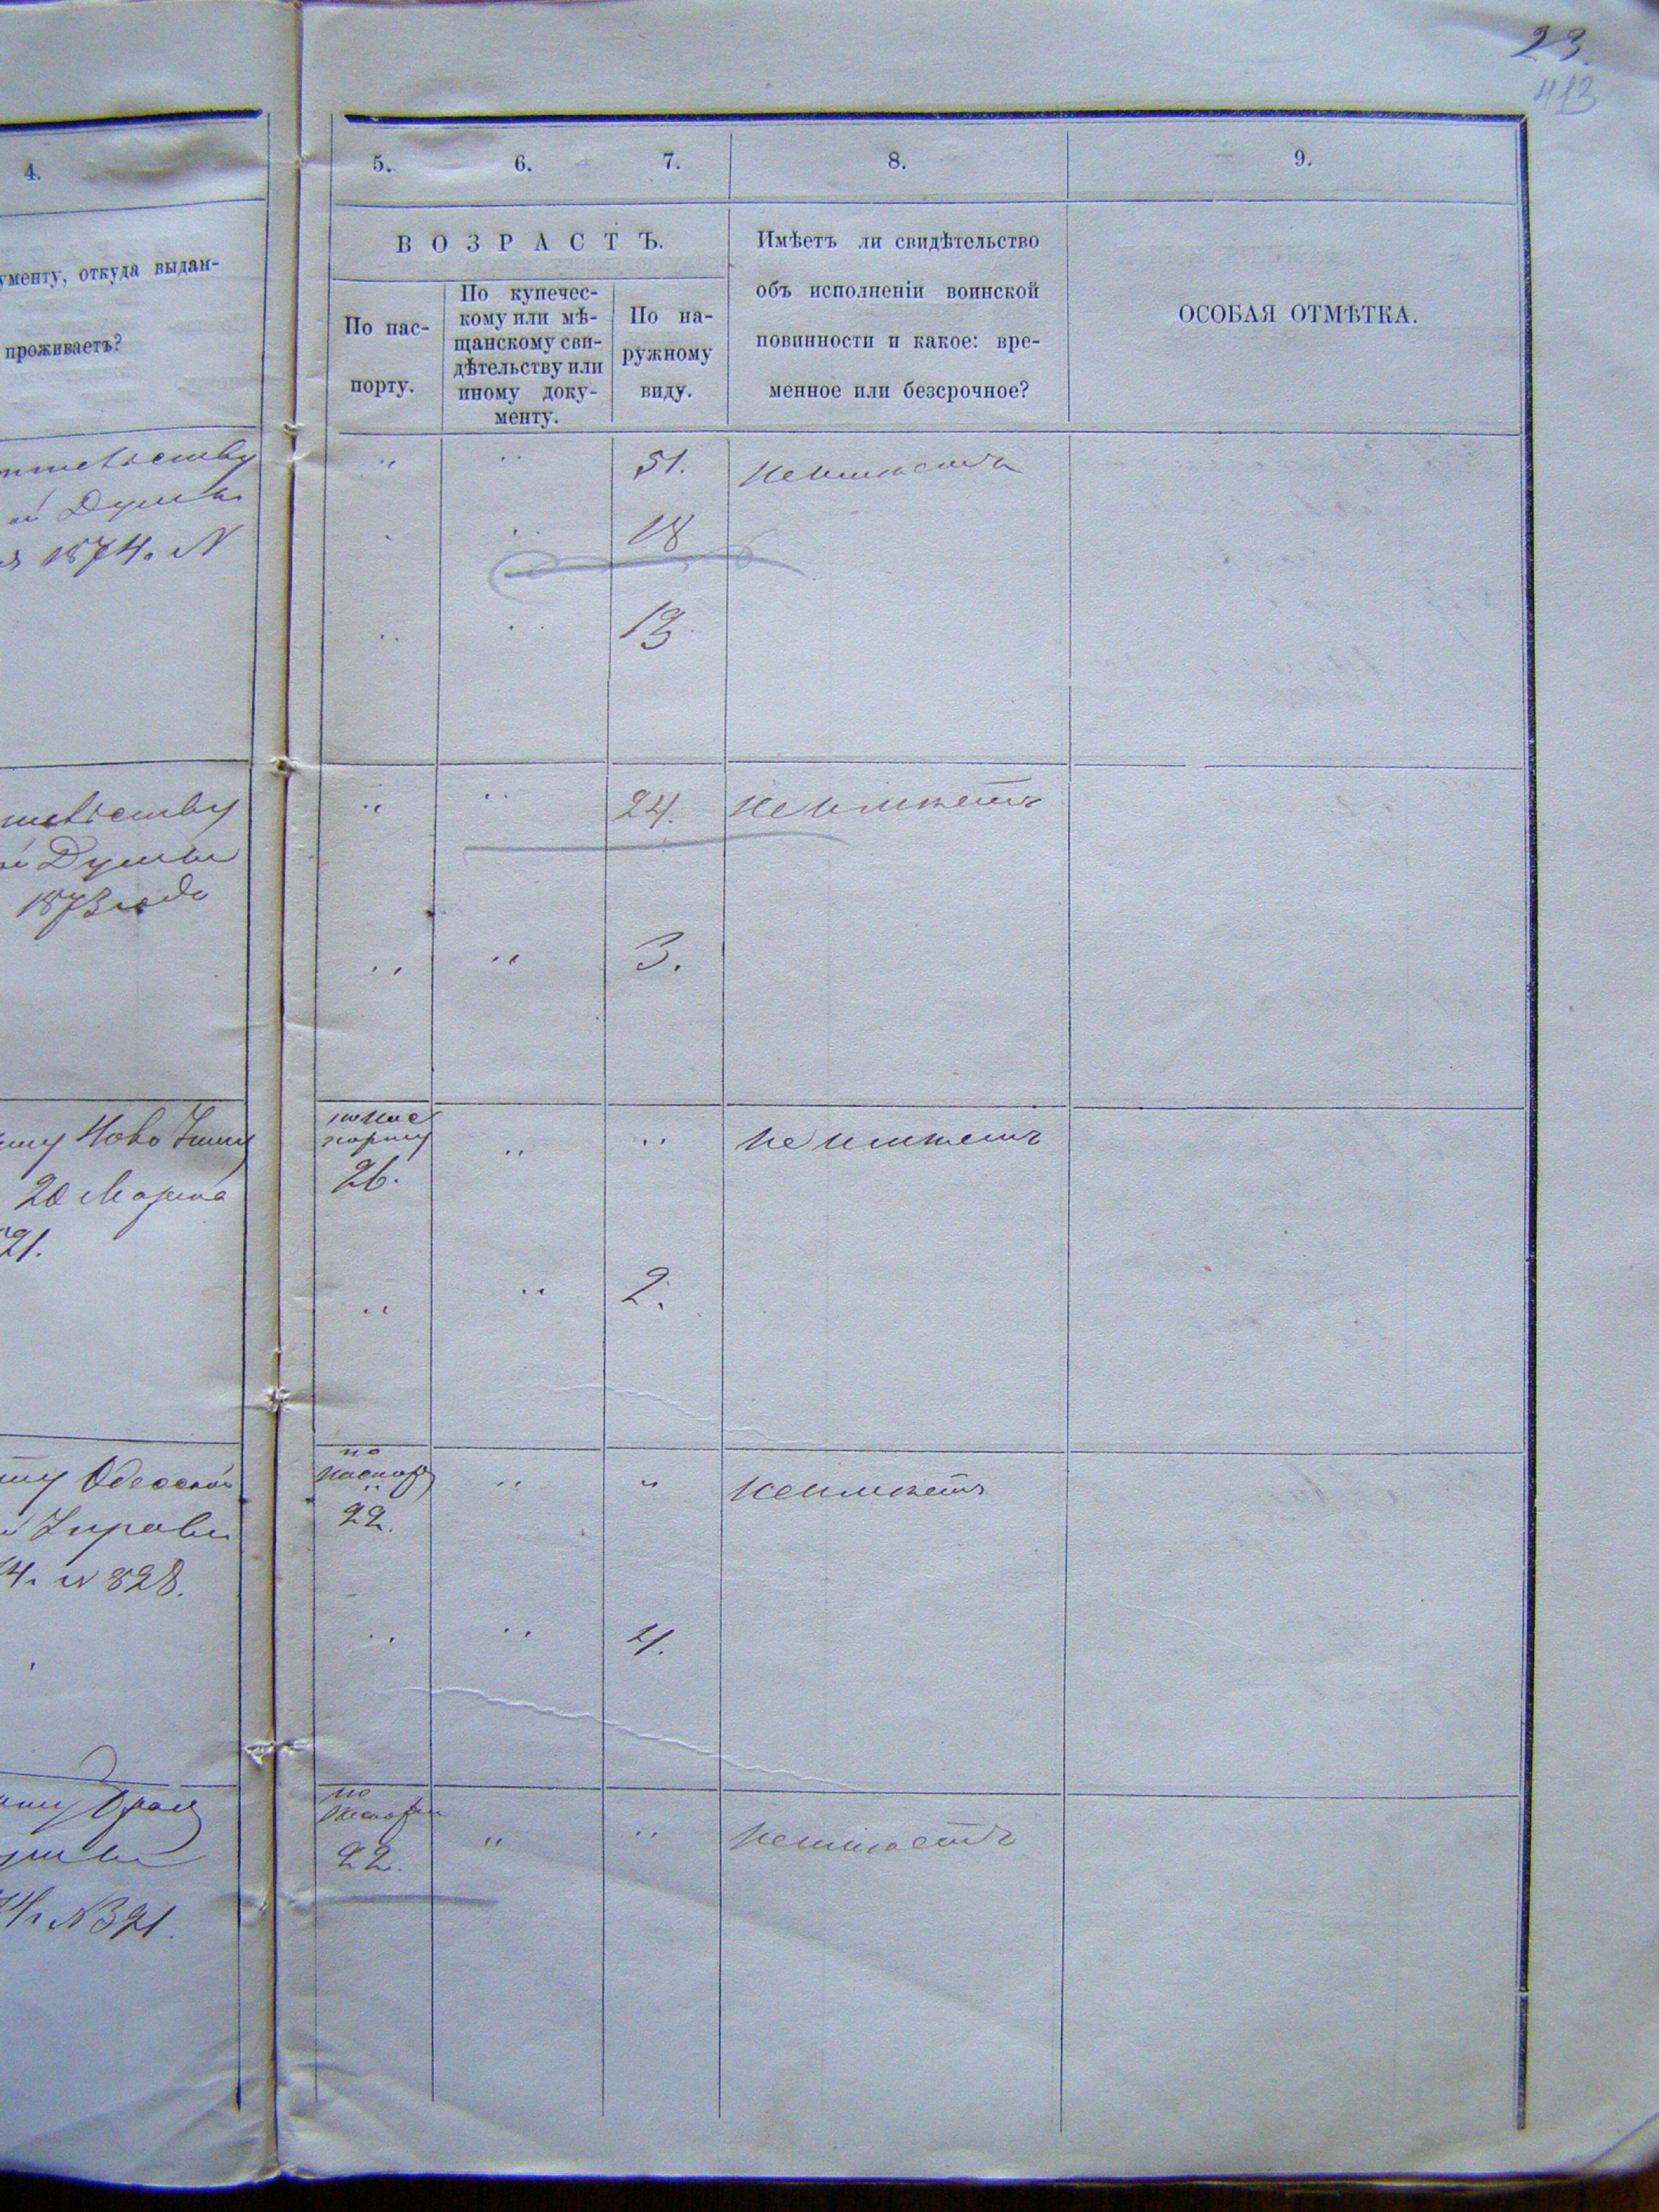 23.
413
4.
5. 6. 7. 8. 9.
ументу, откуда выдан-
проживаетъ?
ВОЗРАСТЪ.
По пас-
порту.
По купечес-
кому или мѣ-
щанскому сви-
дѣтельству или
иному доку-
менту.
По на-
ружному
виду.
Имѣетъ ли свидѣтельство
объ исполненіи воинской
повинности и какое: вре-
менное или безсрочное?
ОСОБАЯ ОТМѢТКА.
" " 51. неимѣетъ
ой Думы
1874. N
" " 18
" " 13
" " 24. неимѣетъ
Думы
1873 года
" " 3.
Ново
20 Марта
21.
попас
порту
26. " " не имѣетъ
" " 2.
Одесской
Управы
4. N 828.
по
паспор
22. " " неимѣетъ
" " 4.
N 391.
по
22. " " неимѣетъ